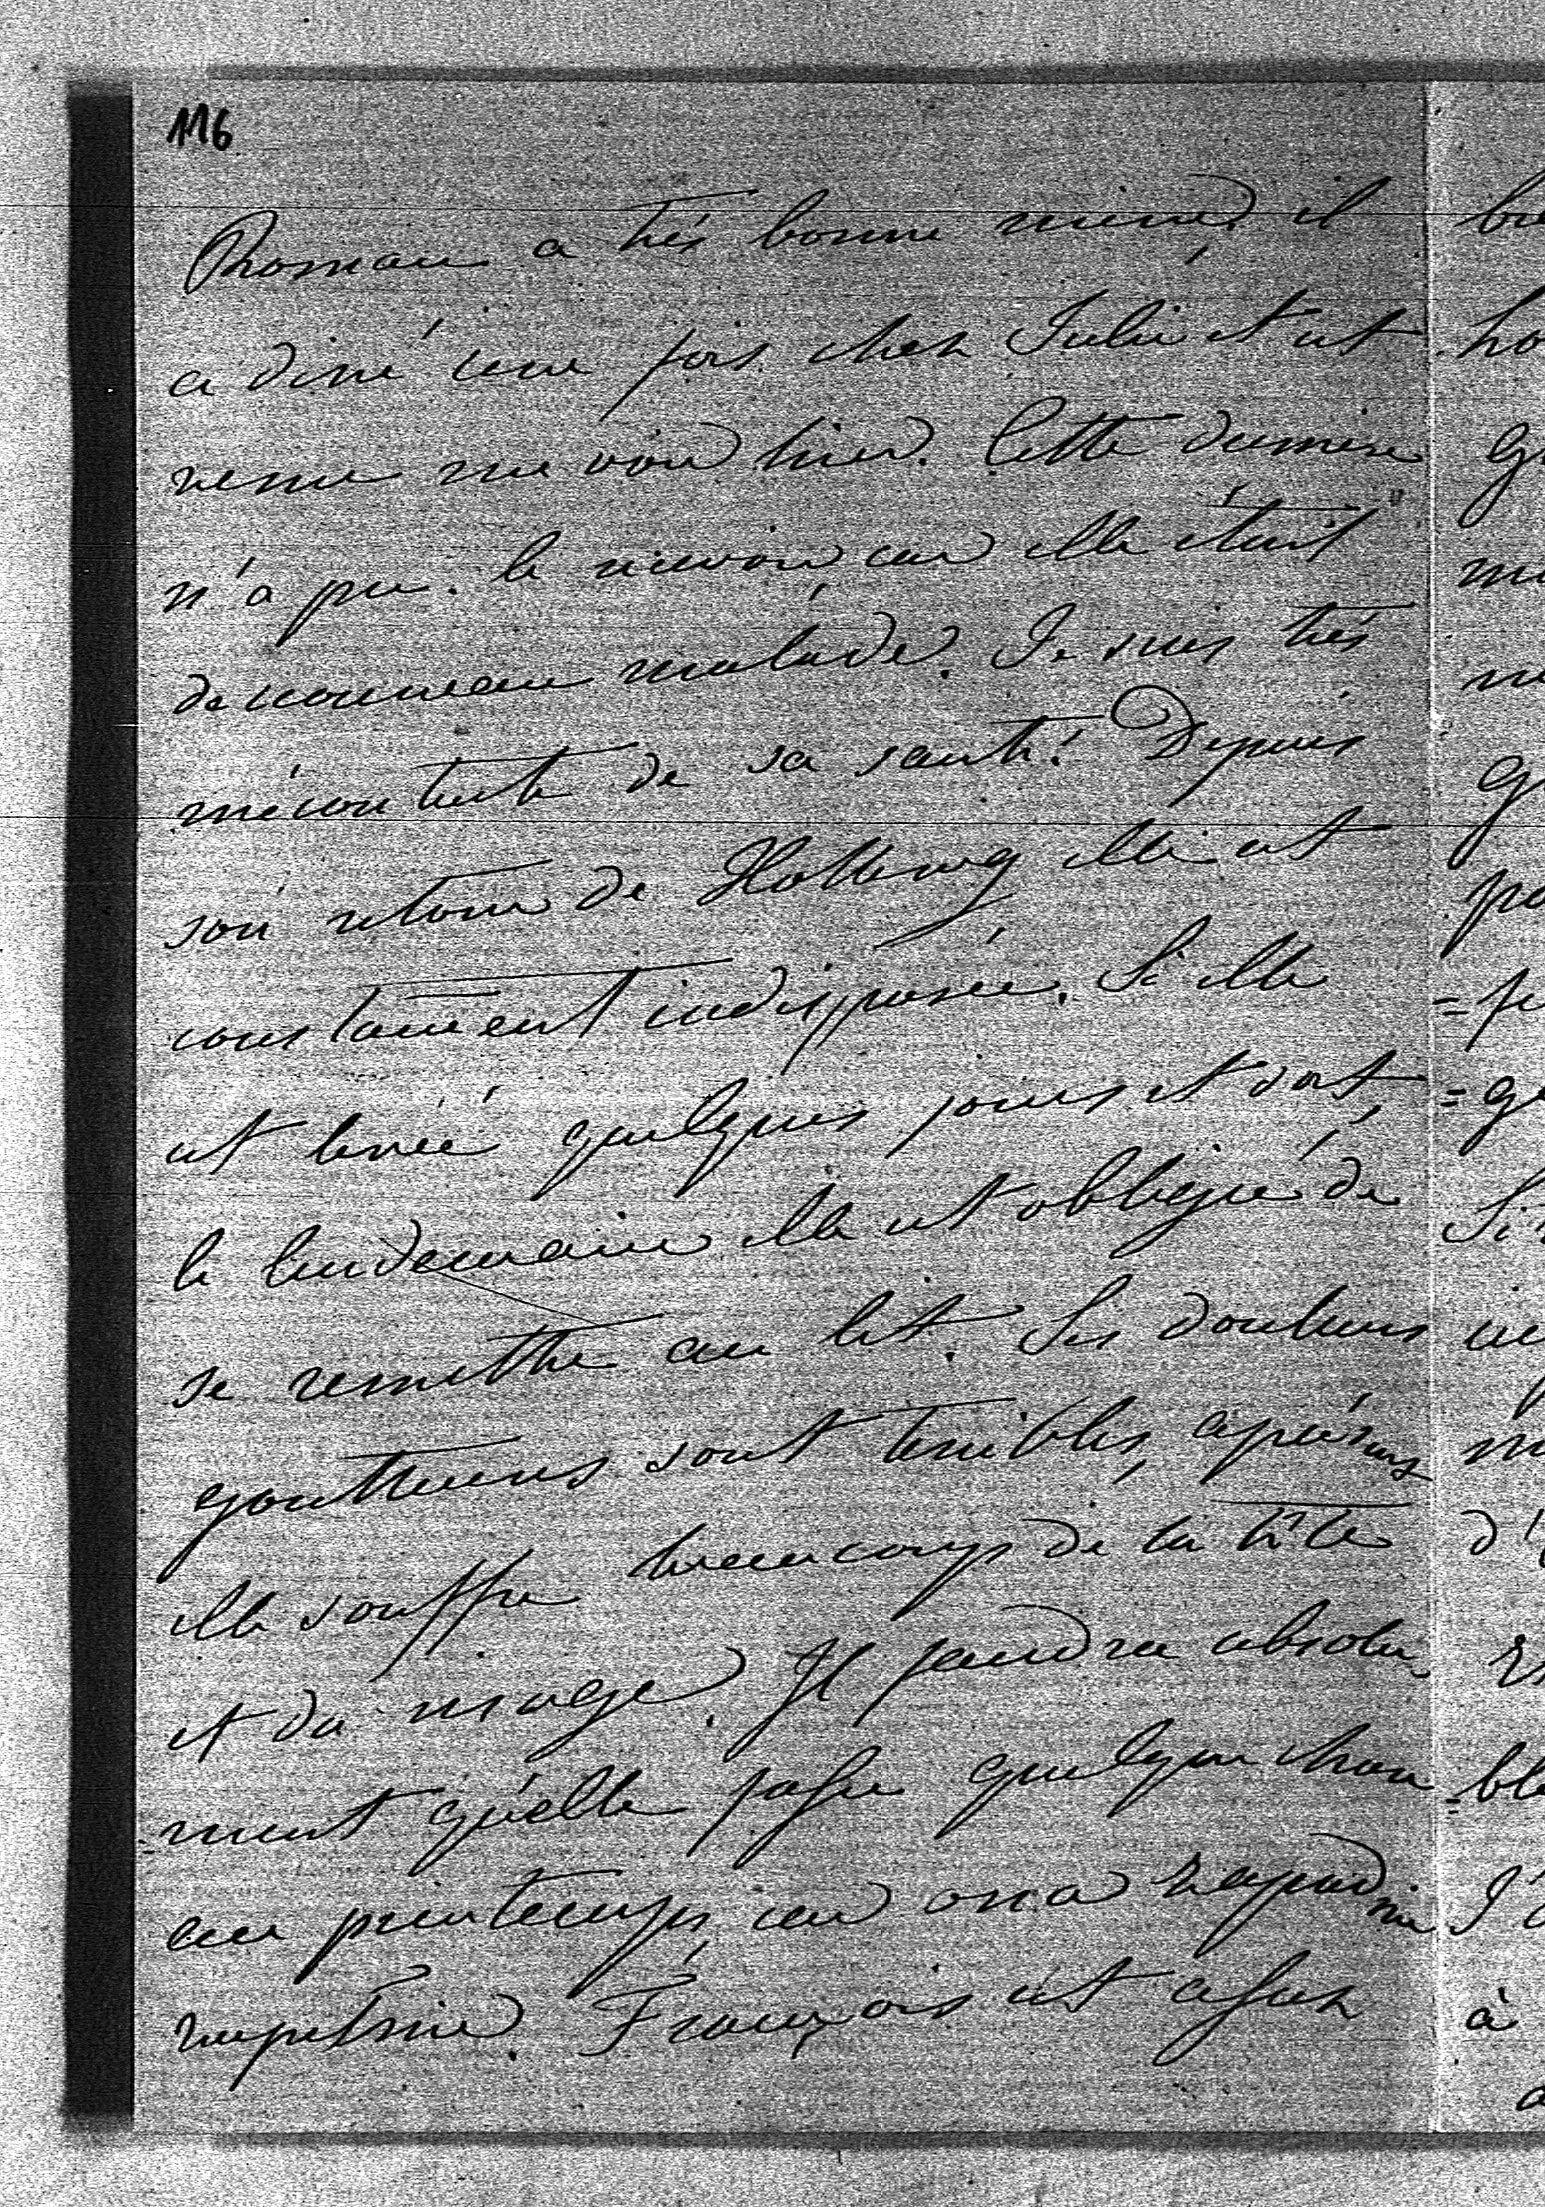 116
Roman a très bonne mine, il
a diné une fois chez Julie et est
venu me voir hier. Cette derniere
n'a pu le recevoir, car elle était
de nouveau malade. Je suis très
mécontente de sa santé. Depuis
son retour de elle est
constamment indisposée. Si elle
est levée quelques jours et sort,
le lendemain elle est obligée de
se remettre au lit. Ses douleurs
goutteuses sont terribles,
elle souffre beaucoup de la tête
et du visage. Il faudra absolu-
-ment qu'elle fasse quelque chose
au printemps, car on a
. François est assez